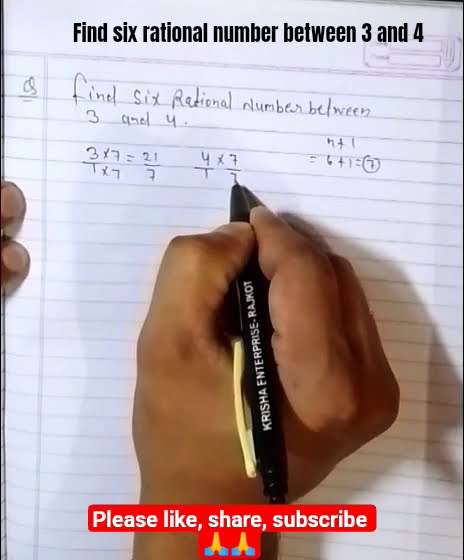 Find six rational number between 3 and 4
Q Find Six Rational Number between
3 and 4.
n+1
= 6+1=7
3×7 = 21 4 × 7
1×7 7 1 7
KRISHA ENTERPRISE- RAJKOT
Please like, share, subscribe
🙏🙏